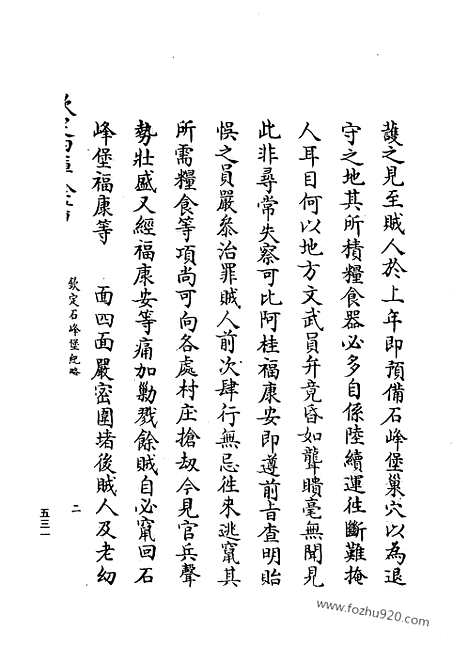 護之見至賊人於上年即預備石峰堡巢穴以為退
守之地其所積糧食器必多自係陸續運往斷難掩
人耳目何以地方文武員弁竟昏如聾聵毫無聞見
此非尋常失察可比阿桂福康安即遵前旨查明貽
悞之員嚴叅治罪賊人前次肆行無忌往來逃竄其
所需糧食等項尚可向各處村庄搶刼今見官兵聲
勢壯盛又經福康安等痛加勦戮餘賊自必竄回石
峰堡福康等 面四面嚴密圍堵後賊人及老幼
欽定石峰堡紀略
二
五三一
www.fozhu920.com